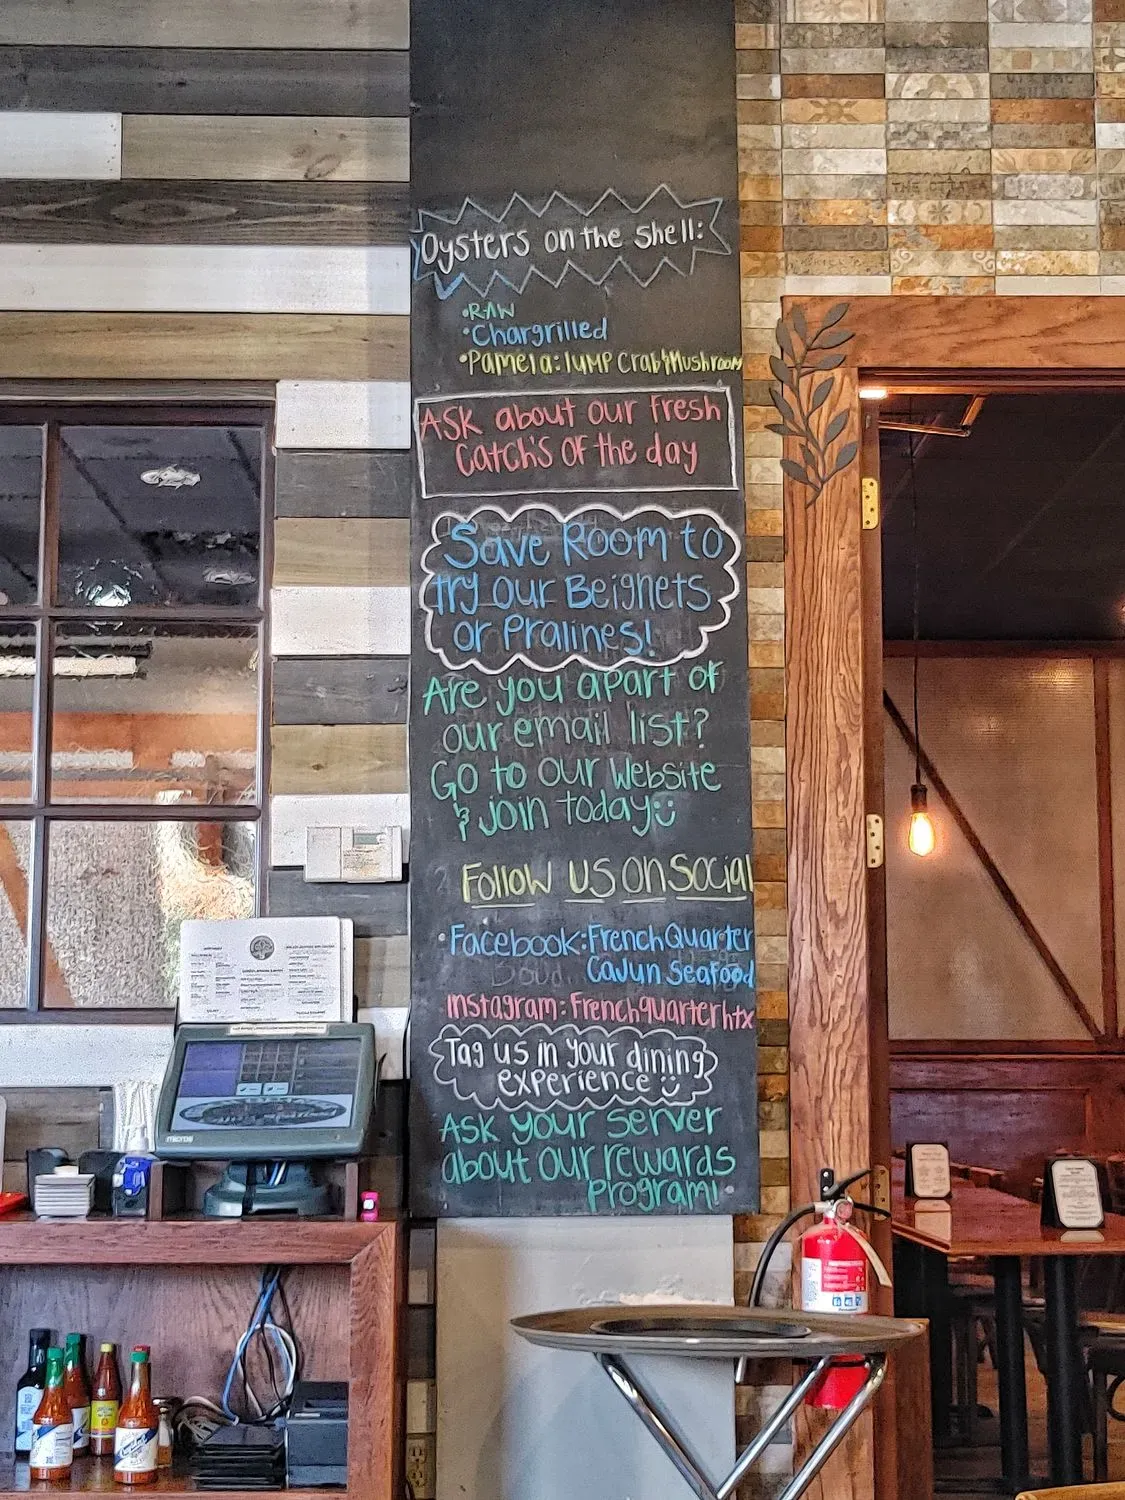 Oysters on the shell:
•RAW
•Chargrilled
•Pamela: lump Crab & Mushroom
Ask about our fresh
Catch's of the day
Save Room to
try our Beignets
or Pralines!
Are you apart of
our email list?
Go to our website
& join today
Follow us on Social
•Facebook: French Quarter
Cajun Seafood
Instagram: Frenchquarterhtx
Tag us in your dining
experience
Ask your server
about our rewards
program!
micros